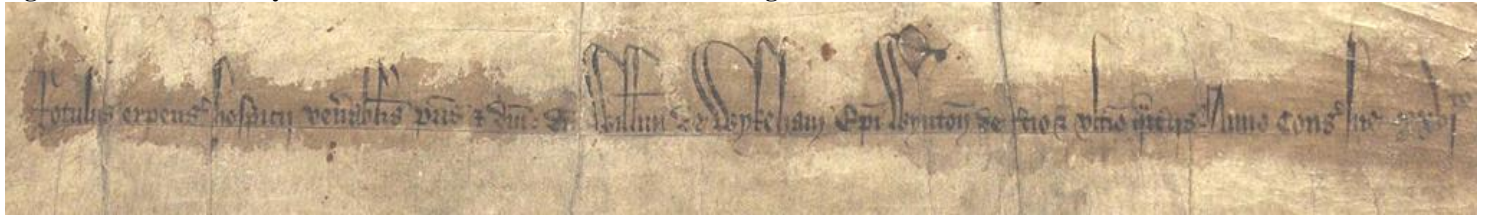 Rotulus expens' hospicij ven'abilis p'ris & d'ni d' Will'mi de Wykeham Ep'i Wynton' de & vltio q'rtijs Anno Cons' sue xxvjto